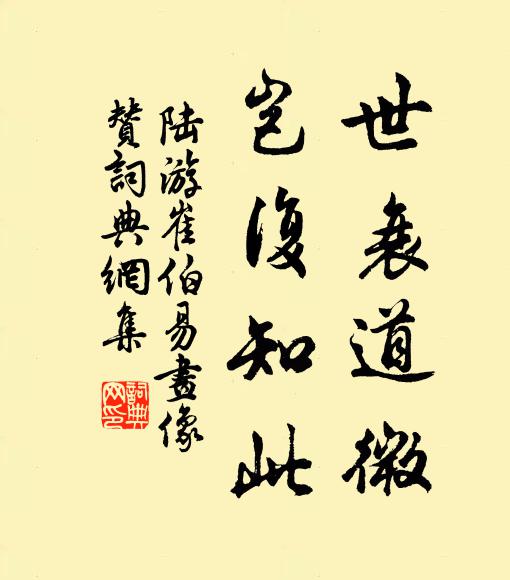 世衰道微
岂復知此
陆游崔伯易畫像
赞詞典網集
詞典網印